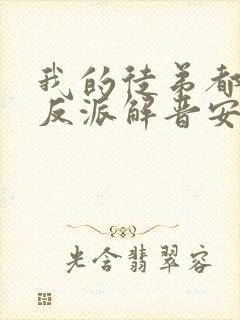 我的徒弟都
反派解晋安
光含翡翠容